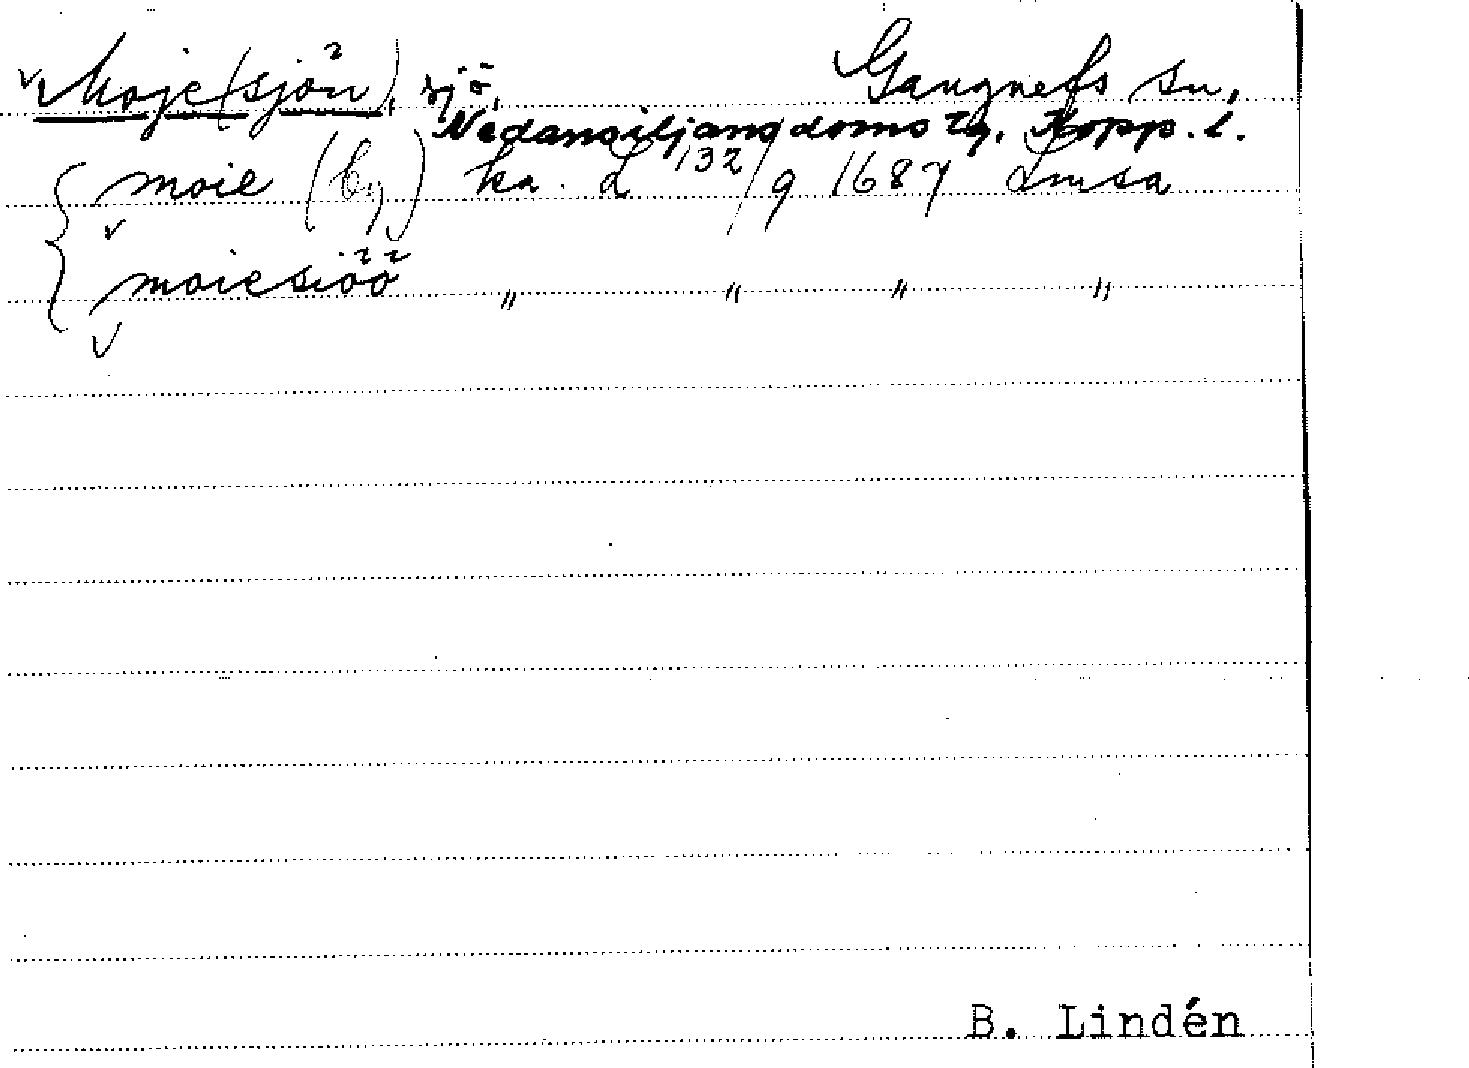 Moje(sjön), sjö, Gangnefs sn,
Nedansiljans domsag. Kopp. l.
moie (by) ka. L 132/9 1687 Lmsa
moiesiöö " " " "
B. Lindén